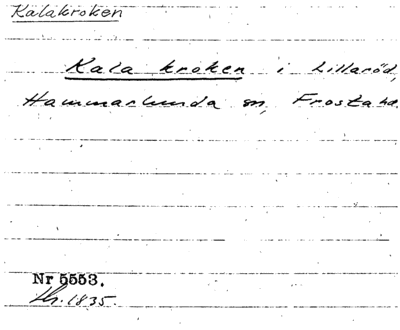 Kalakroken
Kala kroken i Lillaröd,
Hammarlunda sn, Frosta hd.
Nr 5553.
Lh. 1835.